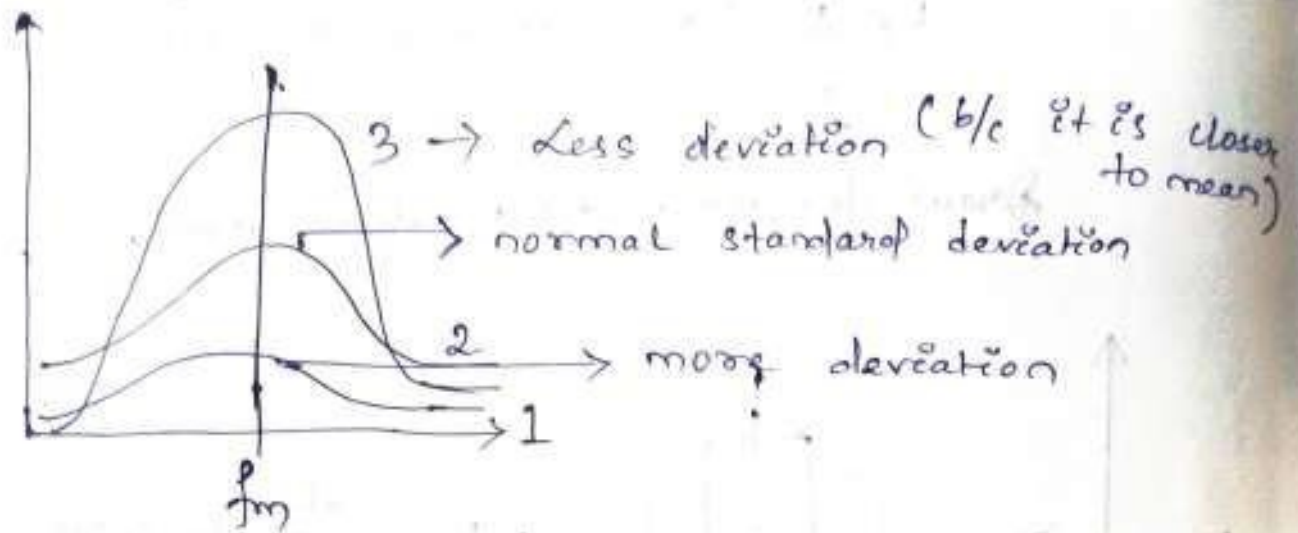 3 → Less deviation (b/c it is closer
to mean)
normal standard deviation
2
more deviation
1
fm